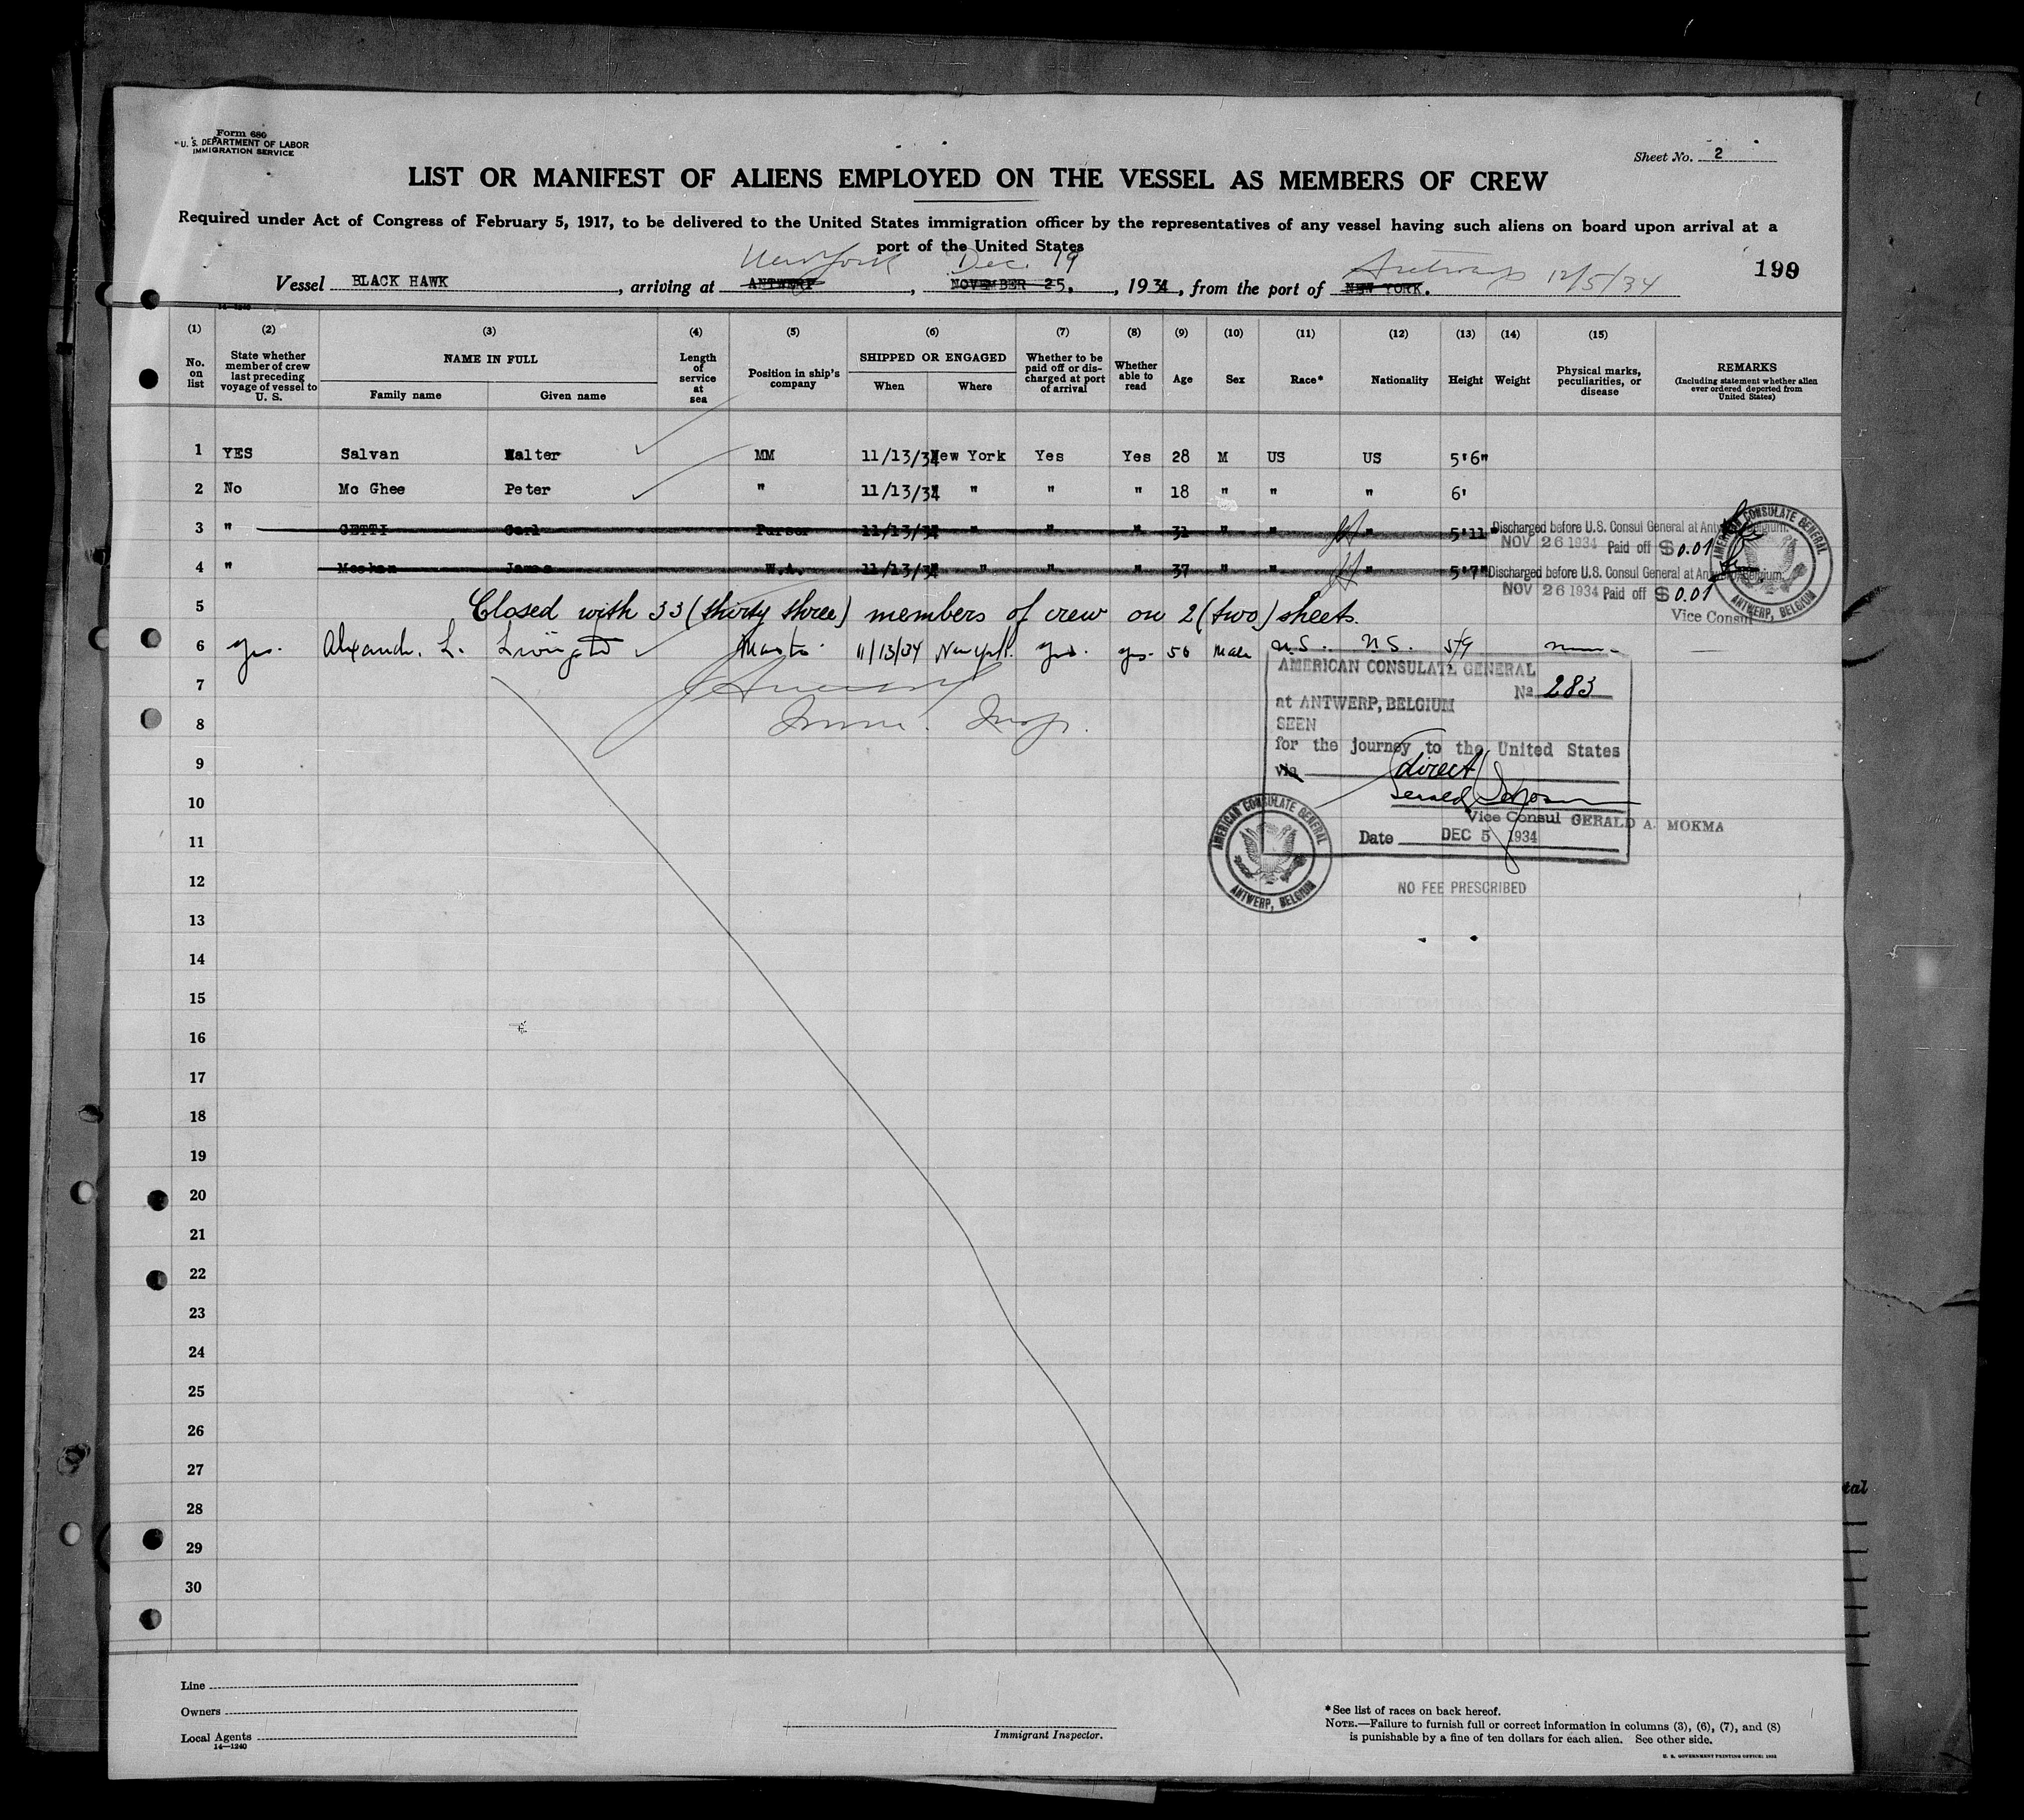 Form 680
U. S. DEPARTMENT OF LABOR
IMMIGRATION SERVICE
Sheet No. 2
LIST OR MANIFEST OF ALIENS EMPLOYED ON THE VESSEL AS MEMBERS OF CREW
Required under Act of Congress of February 5, 1917, to be delivered to the United States immigration officer by the representatives of any vessel having such aliens on board upon arrival at a
port of the United States
New York Dec. 19 Antwerp 12/5/34
199
Vessel BLACK HAWK, arriving at ANTWERP, NOVEMBER 25, 1934, from the port of NEW YORK.
14-1240
(1) (2) (3) (4) (5) (6) (7) (8) (9) (10) (11) (12) (13) (14) (15)
No. on list
State whether member of crew last preceding voyage of vessel to U. S.
NAME IN FULL
Family name
Given name
Length of service at sea
Position in ship's company
SHIPPED OR ENGAGED
When
Where
Whether to be paid off or discharged at port of arrival
Whether able to read
Age
Sex
Race*
Nationality
Height
Weight
Physical marks, peculiarities, or disease
REMARKS
(Including statement whether alien ever ordered deported from United States)
1 YES Salvan Walter MM 11/13/34 New York Yes Yes 28 M US US 5'6"
2 No Mc Ghee Peter " 11/13/34 " " " 18 " " " 6'
3 " GETTI Carl Purser 11/13/34 " " " 31 " " " 5'11" Discharged before U.S. Consul General at Antwerp, Belgium.
NOV 26 1934 Paid off $ 0.01
4 " Meehan James W.A. 11/13/34 " " " 37 " " " 5'7" Discharged before U.S. Consul General at Antwerp, Belgium.
NOV 26 1934 Paid off $ 0.01
AMERICAN CONSULATE GENERAL
ANTWERP, BELGIUM
Vice Consul
5 Closed with 33 (thirty three) members of crew on 2 (two) sheets.
6 yes. Alexander L. Master 11/13/34 New York. yes. yes. 56 Male U.S. U.S. 5/9
7
8 Imm. Insp.
AMERICAN CONSULATE GENERAL
No 283
at ANTWERP, BELGIUM
SEEN
for the journey to the United States
via direct
Vice Consul GERALD A. MOKMA
Date DEC 5 1934
AMERICAN CONSULATE GENERAL
ANTWERP, BELGIUM
NO FEE PRESCRIBED
9
10
11
12
13
14
15
16
17
18
19
20
21
22
23
24
25
26
27
28
29
30
Line
Owners
Local Agents
14-1240
Immigrant Inspector.
*See list of races on back hereof.
NOTE.—Failure to furnish full or correct information in columns (3), (6), (7), and (8)
is punishable by a fine of ten dollars for each alien. See other side.
U. S. GOVERNMENT PRINTING OFFICE: 1932